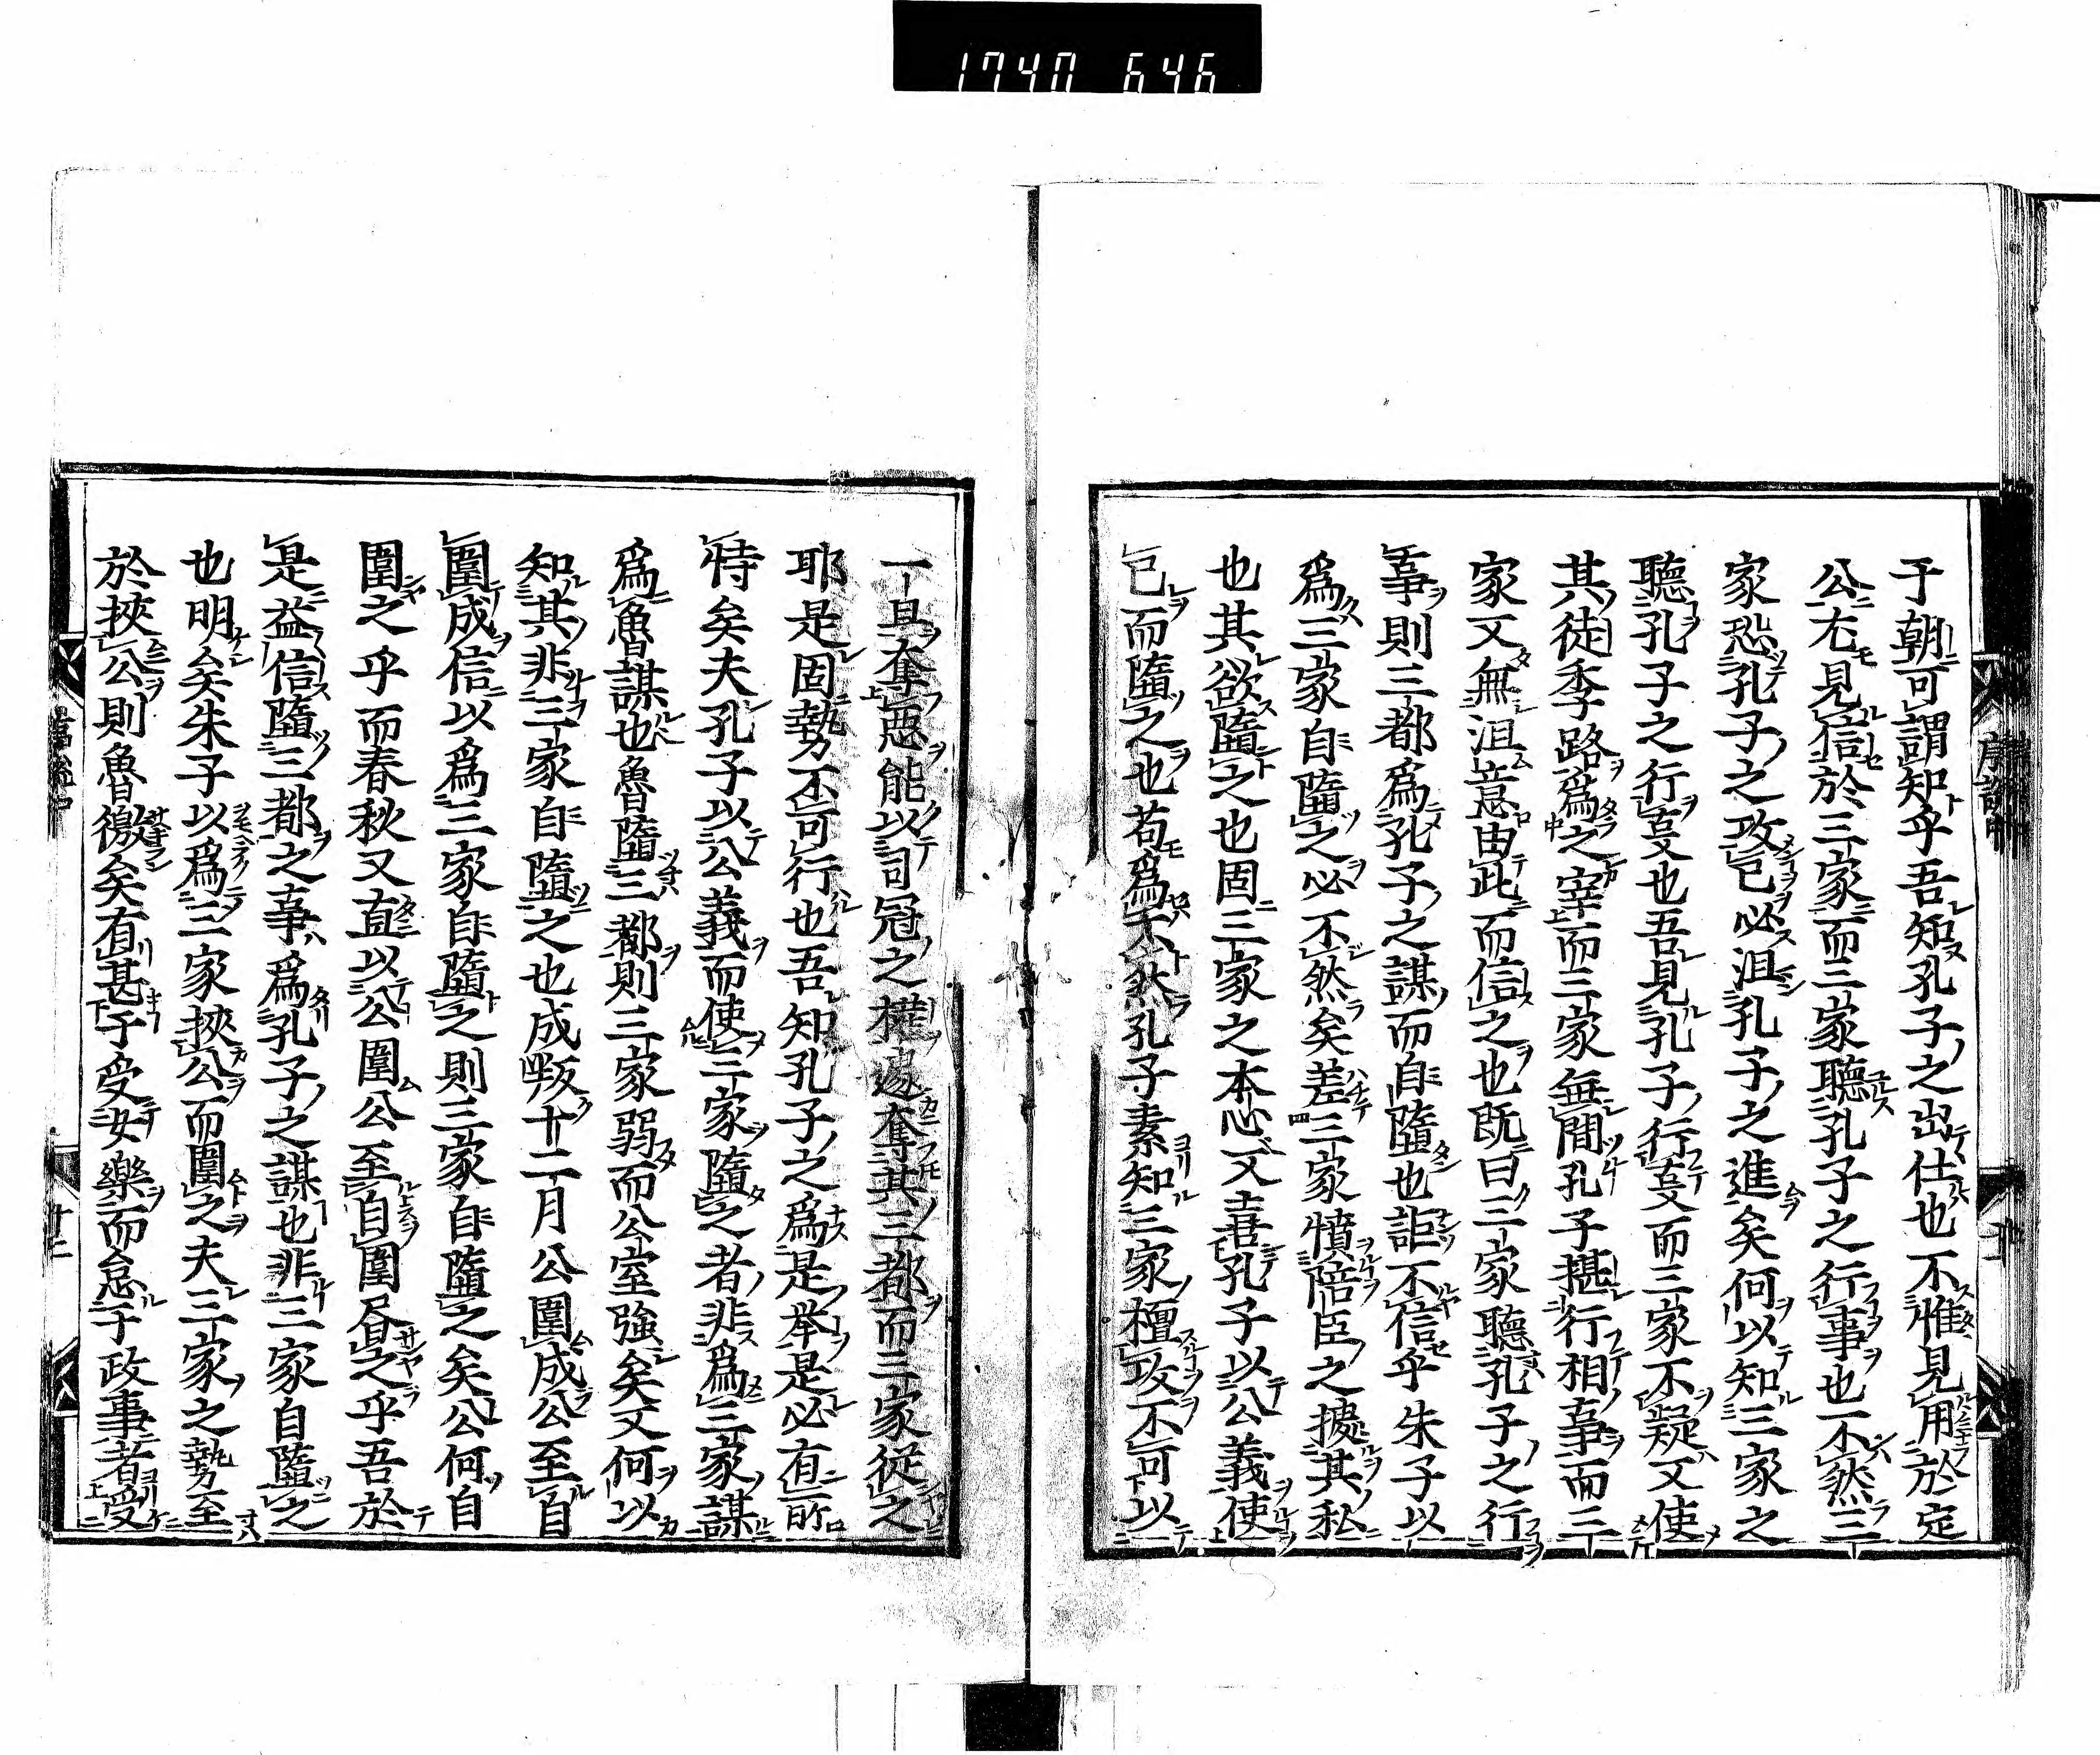 1740 646
于朝可謂知乎吾知孔子之出仕也不惟見用於定
公尤見信於三家而三家聽孔子之行事也不然三
家恐孔子之攻己必沮孔子之進矣何以知三家之
聽孔子之行叓也吾見孔子行叓而三家不疑又使
其徒季路爲之宰而三家無間孔子摂行相事而三
家又無沮意由此而信之也既曰三家聽孔子之行
事則三都爲孔子之謀而自墮也詎不信乎朱子以
爲三家自墮之必不然矣差三家憤陪臣之據其私
也其欲墮之也固三家之本心又喜孔子以公義使
己而墮之也苟爲不然孔子素知三家檀攻不可以
一旦奪惡能以司冦之權遽奪其三都而三家従之
耶是固勢不可行也吾知孔子之爲是挙是必有所
恃矣夫孔子以公義而使三家墮之者非爲三家謀
爲魯謀也魯墮三都則三家弱而公室強矣又何以
知其非三家自墮之也成叛十二月公圍成公至自
圍成信以爲三家自墮之則三家自墮之矣公何自
圍之乎而春秋又直以公圍公至自圍昬之乎吾於
是益信墮三都之事爲孔子之謀也非三家自墮之
也明矣朱子以爲三家挾公而圍之夫三家之勢至
於挾公則魯徼矣有甚于受女樂而怠于政事者受